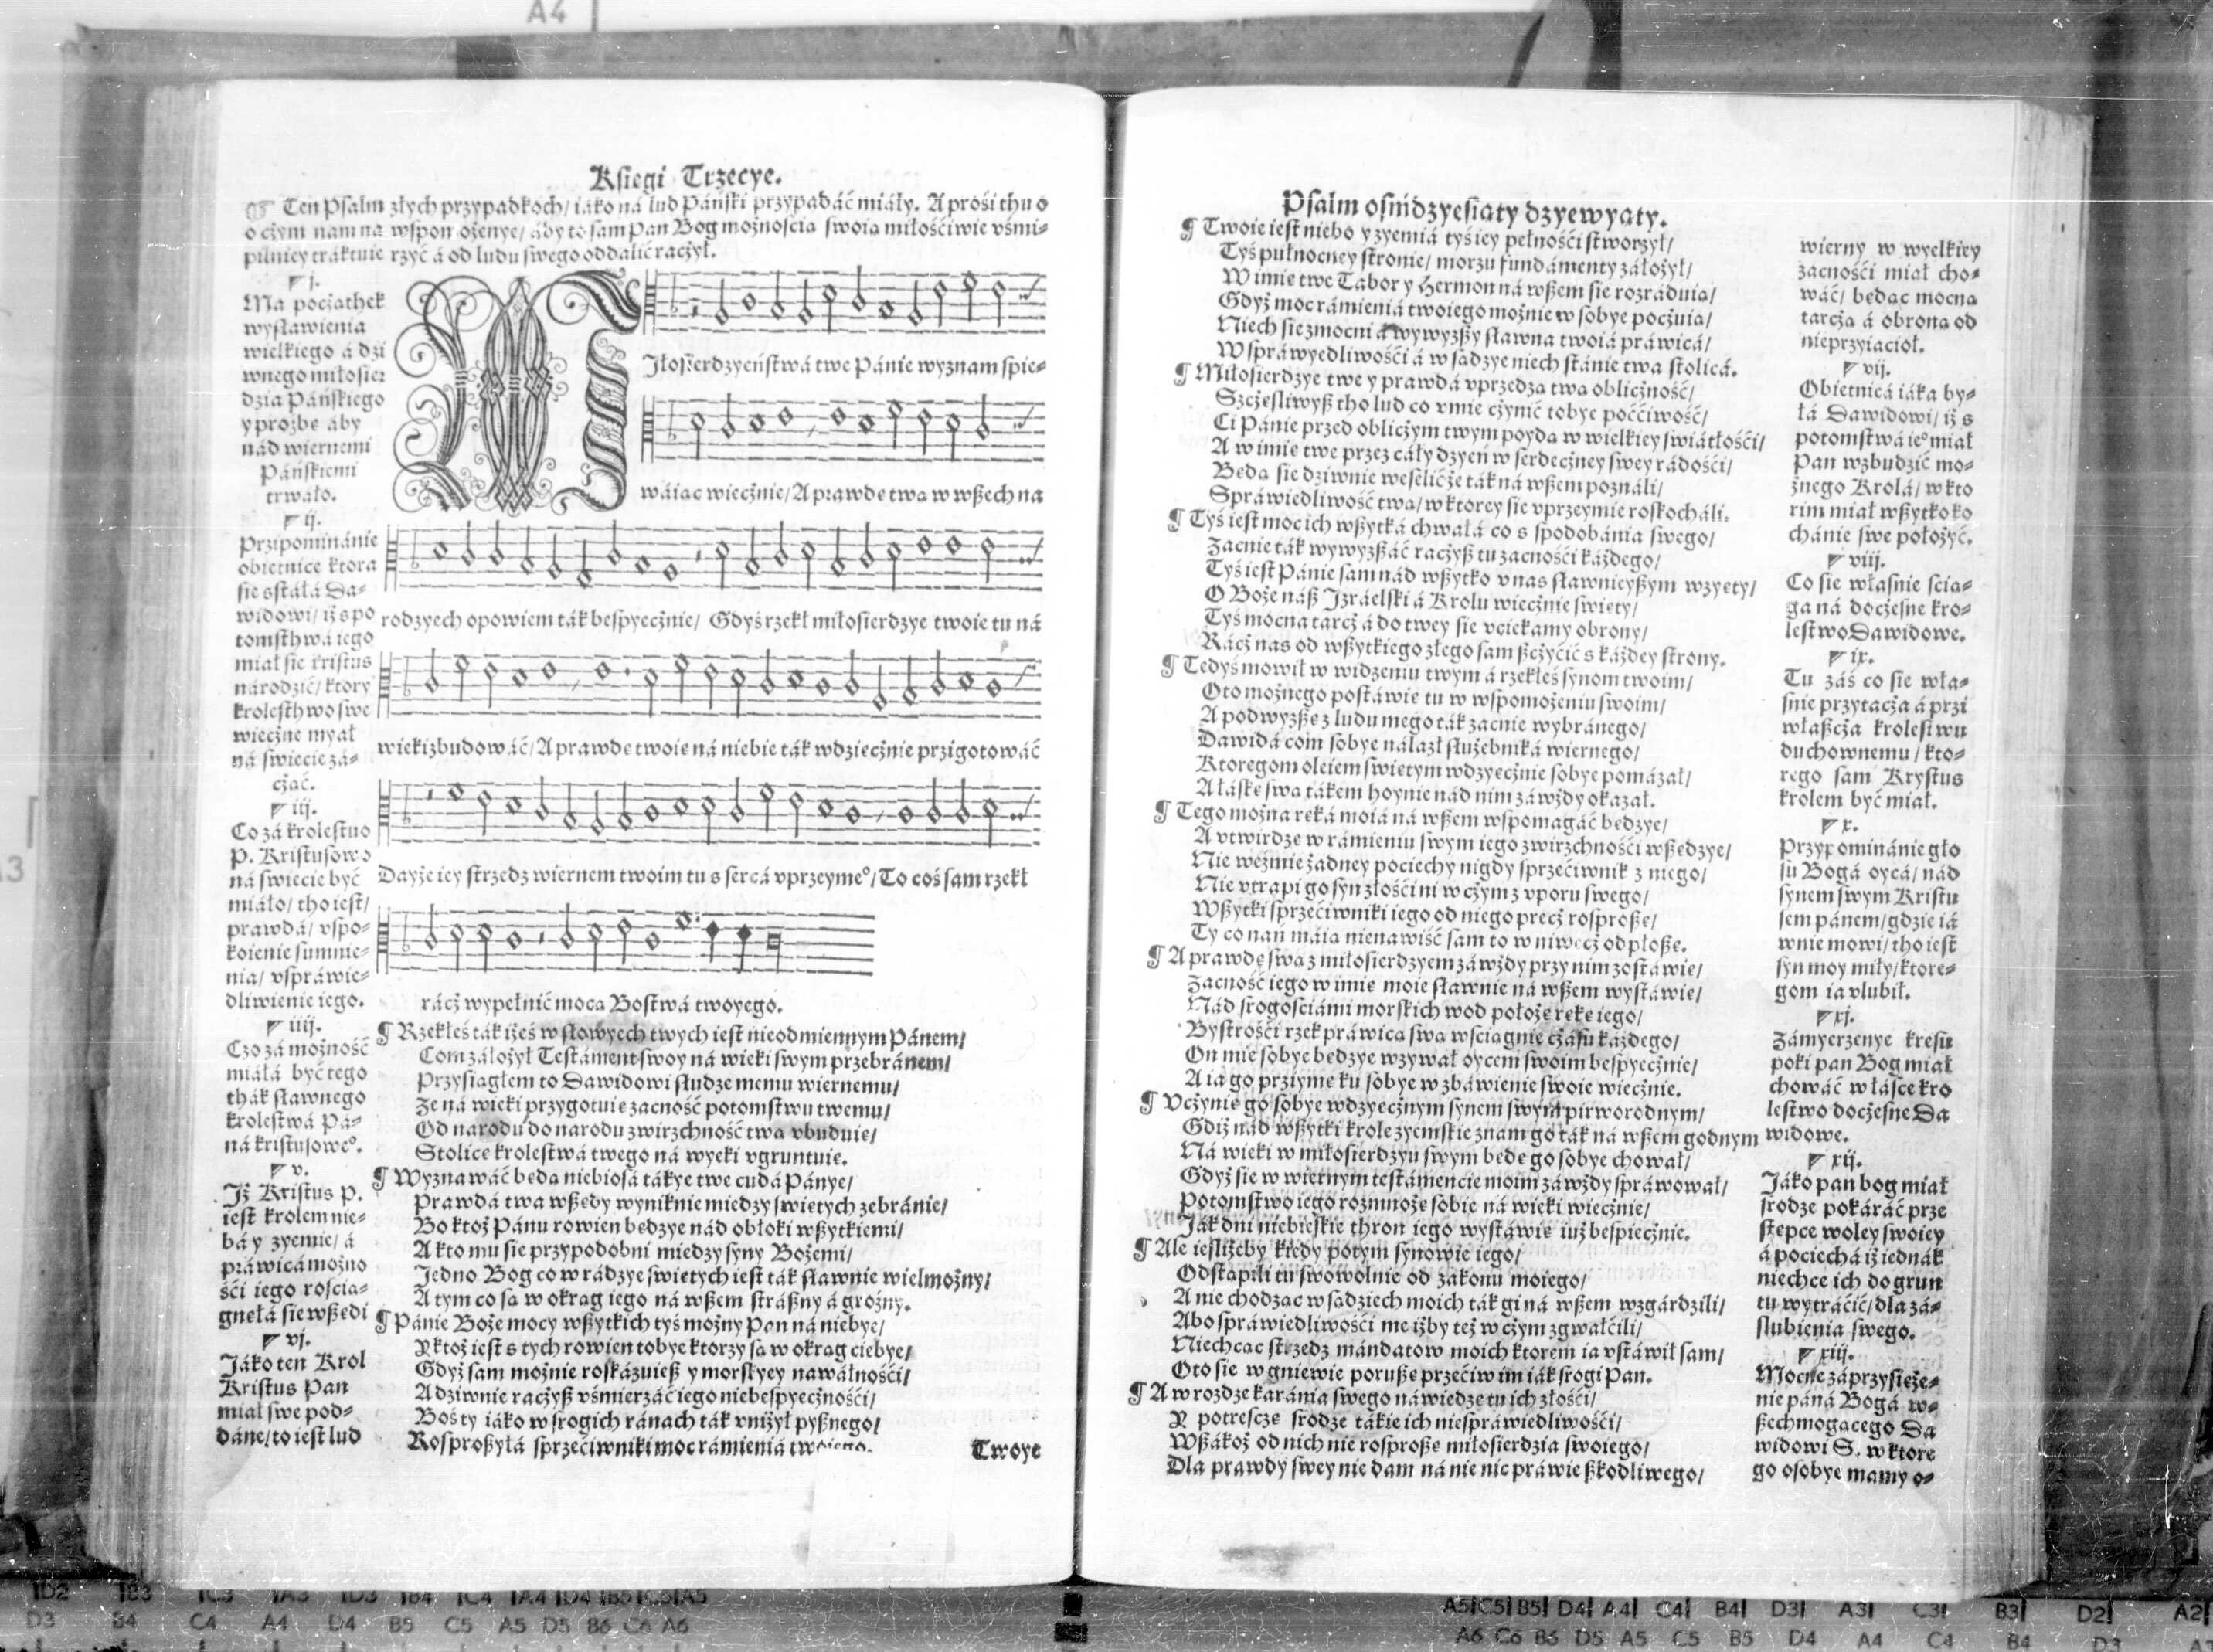 Ksiegi Trzecye.
Ten Psalm złych przypadkoch/ iáko ná lud Páński przypadáć miáły. A prośi thu o
o cżym nam na wspomożenye/ áby to sam Pan Bog możnościa swoia miłośćiwie vśmi-
pilniey tráktuie rzyć á od ludu swego oddalić racżył.
j.
Ma pocżathek
wysławienia
wielkiego á dzi
wnego miłosier
dzia Páńskiego
y prożbe áby
nád wiernemi
Páńskiemi
trwáło.
ij.
Przipominánie
obietnice ktora
sie sstáłá Da-
widowi/ iż s po
tomsthwá iego
miał sie kristus
národzić/ ktory
krolesthwo swe
wiecżne myał
ná swiecie zá-
cżać.
iij.
Co zá krolestwo
P. Kristusowo
ná swiecie być
miáło/ tho iest/
prawdá/ vspo-
koienie sumnie-
nia/ vspráwie-
dliwienie iego.
iiij.
Czo zá możność
miáłá być tego
thák sławnego
krolestwá Pá-
ná kristusoweº.
v.
Iż Kristus P.
iest krolem nie-
bá y zyemie/ á
práwicá możno
śći iego rościa-
gnełá sie wßedi
vj.
Jáko ten Krol
Kristus Pan
miał swe pod-
dáne/ to iest lud
Iłosierdzyeństwá twe Pánie wyznam spie-
wáiac wiecżnie/ A prawde twa w wßech na
rodzyech opowiem ták bespyecżnie/ Gdyś rzekł miłosierdzye twoie tu ná
wieki zbudowáć/ A prawde twoie ná niebie ták wdziecżnie przigotowáć
Dayże iey strzedz wiernem twoim tu s sercá vprzeymeº/ To coś sam rzekł
rácż wypełnić moca Bostwá twoyego.
¶ Rzekłeś ták iżeś w słowyech twych iest nieodmiennym Pánem/
Com záłożył Testáment swoy ná wieki swym przebránem/
Przysiagłem to Dawidowi słudze memu wiernemu/
Ze ná wieki przygotuie zacność potomstwu twemu/
Od narodu do narodu zwirzchność twa vbuduie/
Stolice krolestwá twego ná wyeki vgruntuie.
¶ Wyznawáć beda niebiosá tákye twe cudá Pánye/
Prawdá twa wßedy wyniknie miedzy swietych zebránie/
Bo ktoż Pánu rowien bedzye nád obłoki wßytkiemi/
A kto mu sie przypodobni miedzy syny Bożemi/
Jedno Bog co w rádzye swietych iest ták sławnie wielmożny/
A tym co sa w okrag iego ná wßem stráßny á groźny.
¶ Pánie Boże mocy wßytkich tyś możny Pan ná niebye/
Y ktoż iest s tych rowien tobye ktorzy sa w okrag ciebye/
Gdyż sam możnie roskázuieß y morskyey nawáłnośći/
A dziwnie racżyß vśmierzáć iego niebespyecżnośći/
Boś ty iáko w srogich ránach ták vniżył pyßnego/
Rosproßyłá sprzećiwniki moc rámieniá twoiego.
Twoye
Psalm osmdzyesiaty dzyewyaty.
¶ Twoie iest niebo y zyemiá tyś iey pełnośći stworzył/
Tyś pułnocney stronie/ morzu fundámenty záłożył/
W imie twe Tabor y Hermon ná wßem sie rozráduia/
Gdyż moc rámieniá twoiego możnie w sobye pocżuia/
Niech sie zmocni á wywyzßy sławna twoiá práwicá/
W spráwyedliwośći á w sadzye niech stánie twa stolicá.
¶ Miłosierdzye twe y prawdá vprzedza twa oblicżność/
Szcżesliwyß tho lud co vmie cżynić tobye poććiwość/
Ci Pánie przed oblicżym twym poyda w wielkiey swiátłośći/
A w imie twe przez cáły dzyeń w serdecżney swey rádośći/
Beda sie dziwnie weselić że ták ná wßem poználi/
Spráwiedliwość twa/ w ktorey sie vprzeymie roskocháli.
¶ Tyś iest moc ich wßytká chwałá co s spodobánia swego/
Zacnie ták wywyzßáć racżyß tu zacnośći káżdego/
Tyś iest Pánie sam nád wßytko v nas sławnieyßym wzyety/
O Boże náß Jzráelski á Krolu wiecżnie swiety/
Tyś mocna tarcż á do twey sie vciekamy obrony/
Rácż nas od wßytkiego złego sam ßcżyćić s káżdey strony.
¶ Tedyś mowił w widzeniu twym á rzekłeś synom twoim/
Oto możnego postáwie tu w wspomożeniu swoim/
A podwyzße z ludu mego ták zacnie wybránego/
Dawidá com sobye nálazł służebniká wiernego/
Ktoregom oleiem swietym wdzyecżnie sobye pomázał/
A łáske swa tákem hoynie nád nim záwżdy okazał.
¶ Tego można reká moiá ná wßem wspomagáć bedzye/
A vtwirdze w rámieniu swym iego zwirzchnośći wßedzye/
Nie weźmie żadney pociechy nigdy sprzećiwnik z niego/
Nie vtrapi go syn złośći ni w cżym z vporu swego/
Wßytki sprzećiwniki iego od niego precż rosproße/
Ty co nań máia nienawiść sam to w niwecż odpłoße.
¶ A prawdę swa z miłosierdzyem záwżdy przy nim zostáwie/
Zacność iego w imie moie sławnie ná wßem wystáwie/
Nád srogościámi morskich wod położe reke iego/
Bystrośći rzek práwica swa wściagnie cżásu káżdego/
On mie sobye bedzye wzywał oycem swoim bespyecżnie/
A ia go prziyme ku sobye w zbáwienie swoie wiecżnie.
¶ Vcżynie go sobye wdzyecżnym synem swym pirworodnym/
Gdiż nád wßytki krole zyemskie znam go ták ná wßem godnym
Ná wieki w miłosierdzyu swym bede go sobye chował/
Gdyż sie w wiernym testámencie moim záwżdy spráwował/
Potomstwo iego rozmnoże sobie ná wieki wiecżnie/
Ják dni niebieskie thron iego wystáwie iuż bespiecżnie.
¶ Ale iesliżeby kiedy potym synowie iego/
Odstąpili tu swowolnie od zakonu moiego/
A nie chodzac w sadziech moich ták gi ná wßem wzgárdzili/
Abo spráwiedliwośći me iżby też w cżym zgwałćili/
Niechcac strzedz mándatow moich ktorem ia vstáwił sam/
Oto sie w gniewie poruße przećiw im iák srogi Pan.
¶ A w rozdze karánia swego náwiedze tu ich złośći/
Y potrescze srodze tákie ich niespráwiedliwośći/
Wßákoż od nich nie rosproße miłosierdzia swoiego/
Dla prawdy swey nie dam ná nie nic práwie ßkodliwego/
wierny w wyelkiey
zacnośći miał cho-
wáć/ bedac mocna
tarcża á obrona od
nieprzyiacioł.
vij.
Obietnicá iáka by-
łá Dawidowi/ iż s
potomstwá ieº miał
Pan wzbudzić mo-
żnego Krolá/ w kto
rim miał wßytko ko
chánie swe położyć.
viij.
Co sie własnie scia-
ga ná docżesne kro-
lestwo Dawidowe.
ix.
Tu záś co sie wła-
snie przytacża á przi
właßcża krolestwu
duchownemu/ kto-
rego sam Krystus
krolem być miał.
x.
Przypominánie gło
su Bogá oycá/ nád
synem swym Kristu
sem pánem/ gdzie iá
wnie mowi/ tho iest
syn moy miły/ ktore-
gom ia vlubił.
xj.
Zámyerzenye kresu
poki pan Bog miał
chowáć w łásce kro
lestwo docżesne Da
widowe.
xij.
Jáko pan bog miał
srodze pokáráć prze
stepce woley swoiey
á pociechá iż iednák
niechce ich do grun
tu wytráćić/ dla zá-
slubienia swego.
xiij.
Mocne záprzysieże-
nie páná Bogá w-
ßechmogacego Da
widowi S. w ktore
go osobye mamy o-